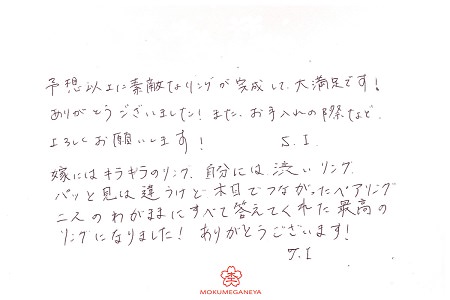 予想以上に素敵なリングが完成して、大満足です!
ありがとうございました!また、お手入れの際など、
よろしくお願いします! S.I
嫁にはキラキラのリング、自分には渋いリング
パッと見は違うけど木目でつながったペアリング
二人のわがままにすべて答えてくれた最高の
リングになりました!ありがとうございます!
T.I
MOKUMEGANEYA